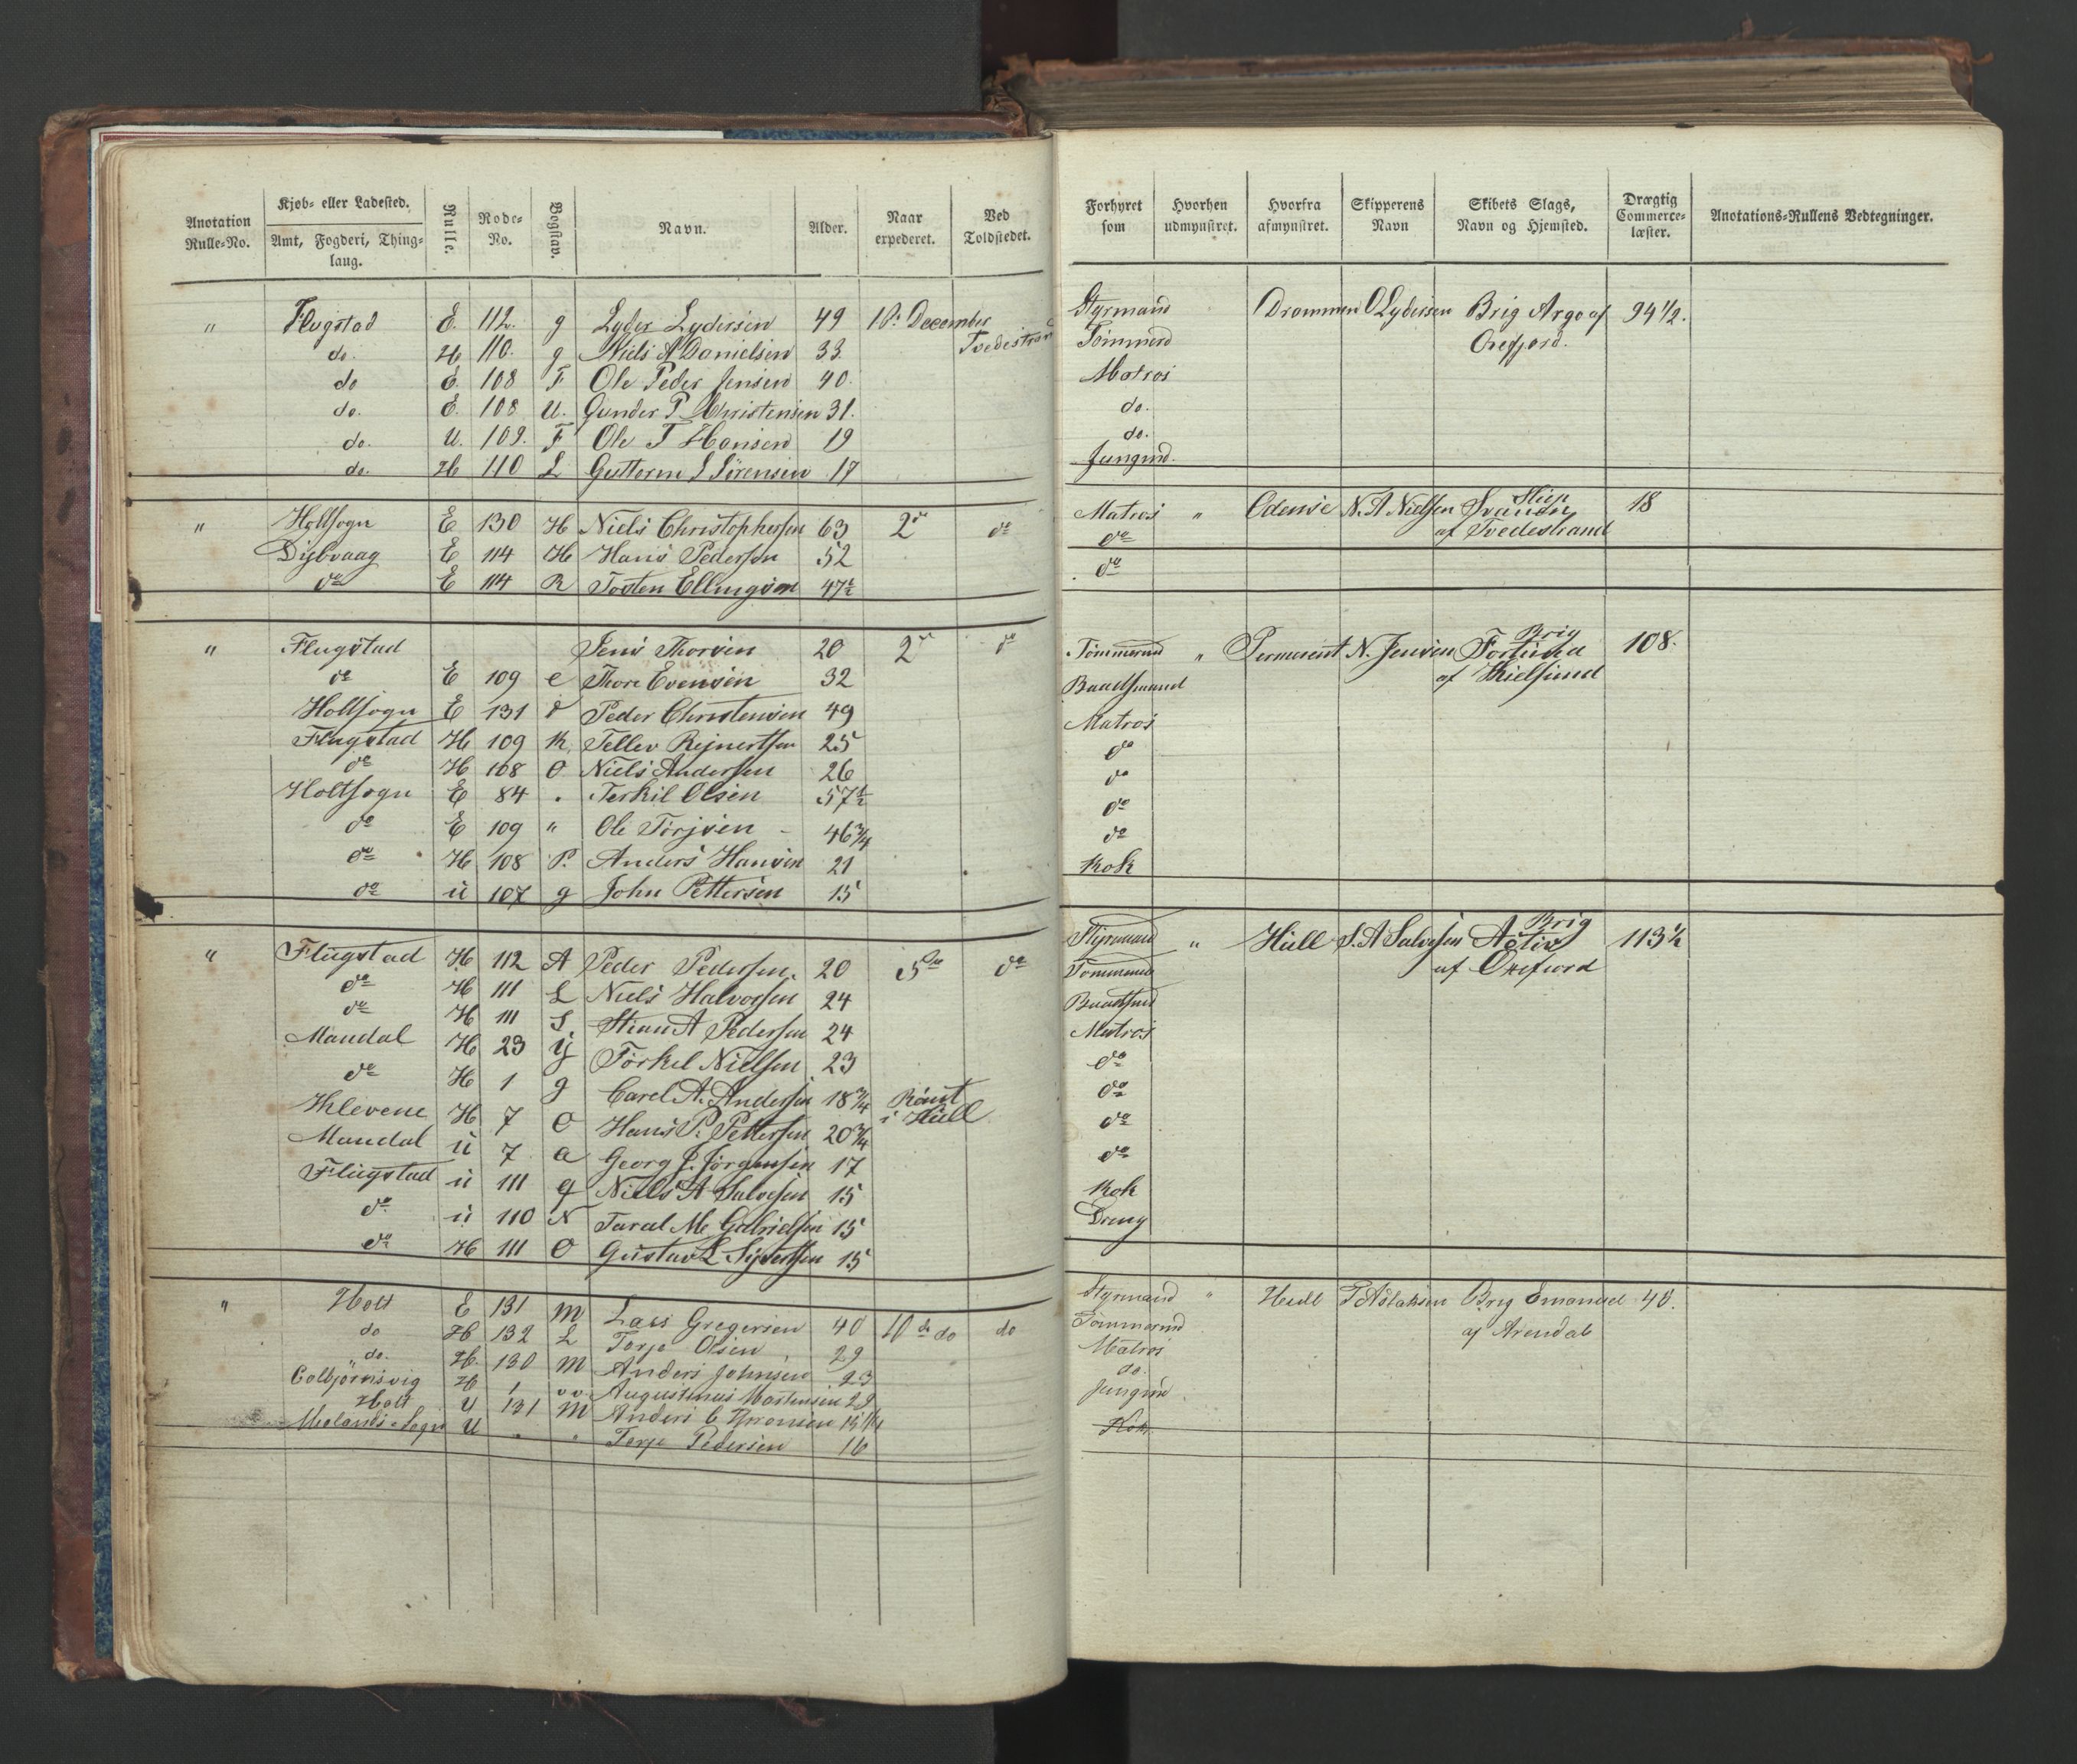 Anotation Rulle-No. | Kjøb- eller Ladested. Amt, Fogderi, Thinglaug. | Rulle. | Rode-No. | Bogstav. | Navn. | Alder. | Naar expederet. | Ved Toldstedet. | Forhyret som | Hvorhen udmynstret. | Hvorfra afmynstret. | Skipperens Navn | Skibets Slags, Navn og Hjemsted. | Drægtig Commerce-læster. | Anotations-Rullens Vedtegninger.
" Flugstad E. 112. g Lyder Lydersen 49 10: December Tvedestrand Styrmand Drammen O Lydersen Brig Argo af 94 1/2.
do. H 110. g Niels A Danielsen 33 Tømmerd Oxefjord.
do E. 108 F Ole Peder Jensen 40. Matros
do. E. 108 U. Gunder P Christensen 31. do.
do. U. 109. F Ole T Hansen 19 do.
do. H 110 L Guttorm S Sørensen 17 Jungmd.
" Holtsogn E 130 H Niels Christophersen 63 2de do Matros " Odense N. A Nielsen Slup Svanen 18
Dybvaag E 114 H Hans Pedersen 52 do af Tvedestrand
do E 114 R Tosten Ellingsen 47½ do
" Flugstad Jens Thorsen 20 2de do Tømmermd " N. Jensen Brig Fortuna 108.
do E 109 e Thore Evensen 32 Baadsmand af Kielsund
Holtsogn E 131 d Peder Christensen 49 Matros
Flugstad H 109 K. Tellev Rejnertsen 25 do
do H 108 O Niels Andersen 26 do
Holtsogn E 84 . Terkil Olsen 57½ do
do E 109 " Ole Torjsen - 46¾ do
do H 108 P. Anders Hansen 21 Kok
do u 107 g John Pettersen 15
" Flugstad H 112 A Peder Pedersen. 20 5te do Styrmand " Hull S. A Salvesen Brig Activ 113½
do H 111 L Niels Halvorsen 24 Tømmermd af Oxefiord
do H 111 S. Stian A Pedersen 24 Baadsmd
Mandal H 23 ij Torkel Nielsen 23 Matros
do H 1 g Carel A. Andersen 18¾ Rømt i Hull do
Klevene H 7 O Hans P. Pettersen 20¾ do
Mandal u 7 a Georg J. Jørgensen 17 do
Flugstad u 111 g Niels A Salvesen 15 do
do u 110 N Taral M. Gabrielsen 15 Kok
do H 111 O Gustav L Sivertsen 15 Dreng
" Holt E 131 M Lars Gregersen 40 10 de do do Styrmand " Hull T Aslaksen Brig Emanuel 40.
do H 132 L Terje Olsen 29 Tømmermd af Arendal
do. H. 130 M Anders Johnsen 23 Matros
Colbjørnsvig H 1 oo. Augustinus Mortensen 29 do.
Holt U 131 M Anders C 15 Jungmd.
Molands-Sogn U " " Terje Pedersen 16 Kok.